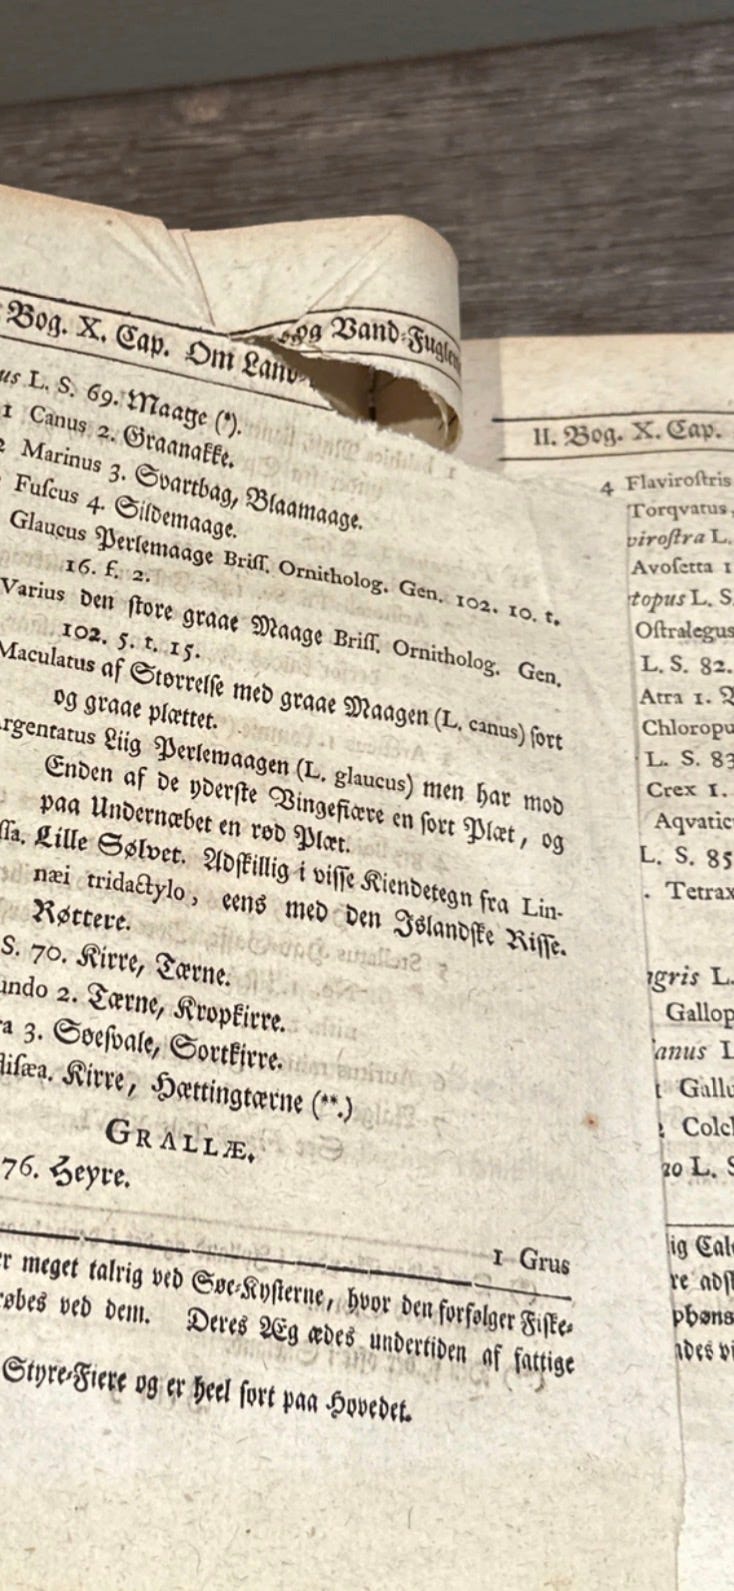 Bog. X. Cap. Om Land- og Vand-Fuglene
L. S. 69. Maage (*).
1 Canus 2. Graanakke.
2 Marinus 3. Svartbag, Blaamaage.
Fuſcus 4. Sildemaage.
Glaucus Perlemaage Briſſ. Ornitholog. Gen. 102. 10. t.
16. f. 2.
Varius den ſtore graae Maage Briſſ. Ornitholog. Gen.
102. 5. t. 15.
Maculatus af Størrelſe med graae Maagen (L. canus) ſort
og graae plættet.
Argentatus Liig Perlemaagen (L. glaucus) men har mod
Enden af de yderſte Vingefiære en ſort Plæt, og
paa Undernæbet en rød Plæt.
Lille Sølvet. Adſkillig i viſſe Kiendetegn fra Lin-
næi tridactylo, eens med den Jslandſke Riſſe.
Røttere.
S. 70. Kirre, Tærne.
undo 2. Tærne, Kropkirre.
ra 3. Søeſvale, Sortkirre.
Kirre, Hættingtærne (**.)
GRALLÆ.
76. Heyre.
1 Grus
er meget talrig ved Søe-Kyſterne, hvor den forfølger Fiſke-
røbes ved dem. Deres Æg ædes undertiden af fattige
Styre-Fiere og er heel ſort paa Hovedet.
II. Bog. X. Cap.
4 Flaviroſtris
Torqvatus,
viroſtra L.
Avoſetta 1
topus L. S.
Oſtralegus
L. S. 82.
Atra 1.
Chloropu
L. S. 83
Crex 1.
Aqvatic
L. S. 85
. Tetrax
agris L.
Gallop
anus L
Gallu
Colch
no L. S
ig Cal
re adſ
phøns
ades vi